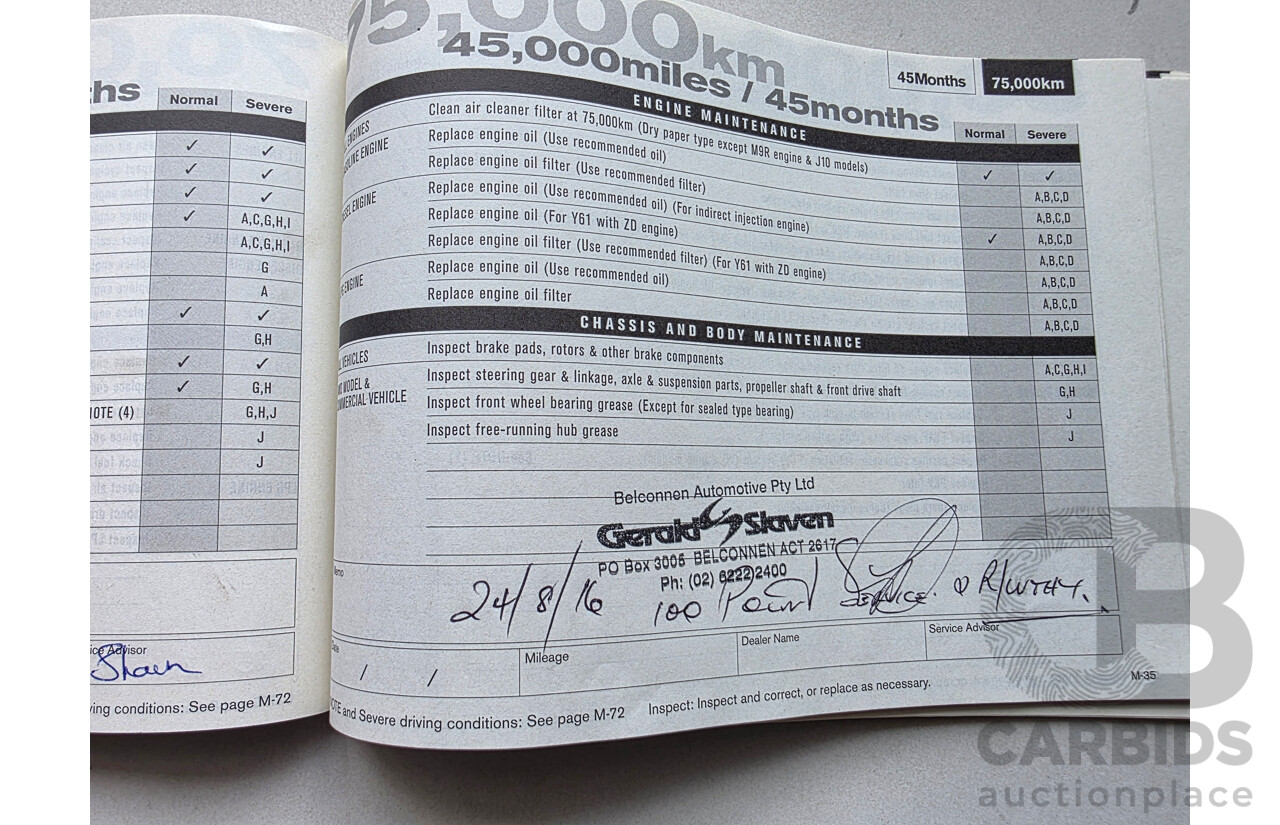 ths
Normal Severe
✓ ✓
✓ ✓
✓ ✓
✓ A,C,G,H,I
A,C,G,H,I
G
A
✓ ✓
G,H
✓ ✓
✓ G,H
NOTE (4) G,H,J
J
J
ice Advisor
Shaen
ing conditions: See page M-72
75,000km
45,000miles / 45months
45Months 75,000km
Normal Severe
ENGINE MAINTENANCE
ENGINES Clean air cleaner filter at 75,000km (Dry paper type except M9R engine & J10 models) ✓ ✓
ENGINE Replace engine oil (Use recommended oil) A,B,C,D
Replace engine oil filter (Use recommended filter) A,B,C,D
ENGINE Replace engine oil (Use recommended oil) (For indirect injection engine) ✓ A,B,C,D
Replace engine oil (For Y61 with ZD engine) A,B,C,D
Replace engine oil filter (Use recommended filter) (For Y61 with ZD engine) A,B,C,D
ENGINE Replace engine oil (Use recommended oil) A,B,C,D
Replace engine oil filter A,B,C,D
CHASSIS AND BODY MAINTENANCE
VEHICLES Inspect brake pads, rotors & other brake components A,C,G,H,I
MODEL & Inspect steering gear & linkage, axle & suspension parts, propeller shaft & front drive shaft G,H
VEHICLE Inspect front wheel bearing grease (Except for sealed type bearing) J
Inspect free-running hub grease J
Belconnen Automotive Pty Ltd
Gerald Slaven
PO Box 3005 BELCONNEN ACT 2617
Ph: (02) 6222 2400
24/8/16 100 Point SERVICE. & R/WTHY.
/ / Mileage Dealer Name Service Advisor
and Severe driving conditions: See page M-72 Inspect: Inspect and correct, or replace as necessary. M-35
CARBIDS
auctionplace